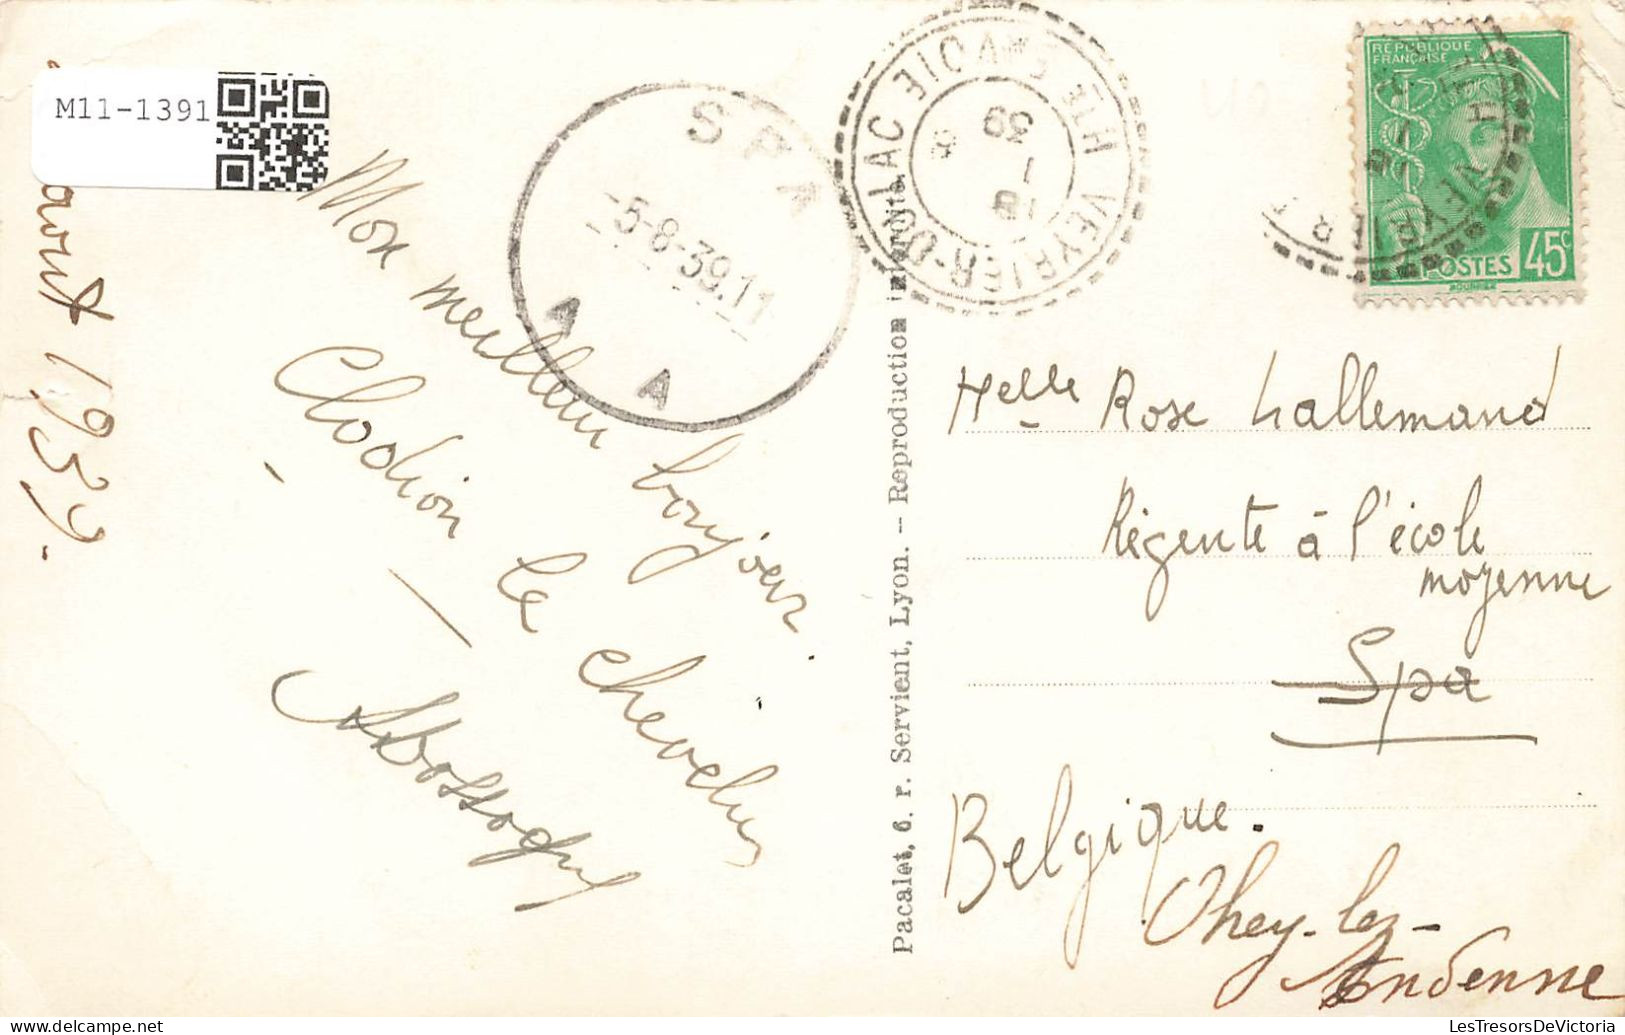 M11-1391
août 1939.
Mon meilleur bonjour
Clodion le chevelu
SPA
-5-8-39.11
A A
VEYRIER-DU-LAC
HTE SAVOIE
18
1
39
RÉPUBLIQUE
FRANÇAISE
POSTES 45c
VEYRIER
Pacalet, 6. r. Servient, Lyon. — Reproduction interdite.
Melle Rose Lallemand
Régente à l'école
moyenne
Spa
Belgique.
Ohey-lez-
Andenne
LesTresorsDeVictoria